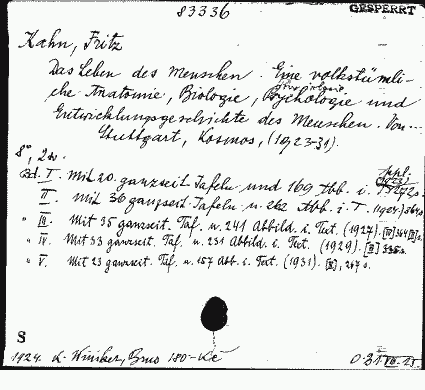 83336
GESPERRT
Kahn, Fritz
Das Leben des Menschen. Eine volkstümli-
che Anatomie, Biologie, Psychologie und
Entwicklungsgeschichte des Menschen. Von
Stuttgart, Kosmos, (1923-31).
8°, 2w.
Bd. I. Mit 20 ganzseit. Tafeln und 169 Abb. i. 272 s.
II. Mit 36 ganzseit. Tafeln u. 262 Abb. i. T. (1924) 364 s.
" III. Mit 35 ganzseit. Taf. u. 241 Abbild. i. Text. (1927).
" IV. Mit 33 ganzseit. Taf. u. 231 Abbild. i. Text. (1929).
" V. Mit 23 ganzseit. Taf. u. 157 Abb. i. Text. (1931). 247 s.
S
1924. K. Winiker, Brno 180-Kč